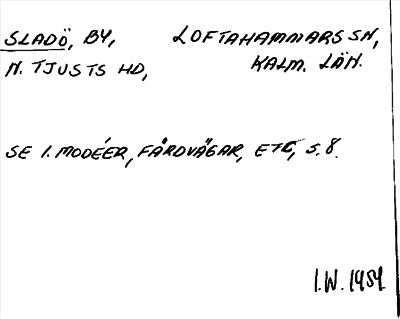 SLADÖ, BY, LOFTAHAMMARS SN,
N. TJUSTS HD, KALM. LÄN.
SE I. MODÉER, FÄRDVÄGAR, ETC, S. 8.
I.W. 1954.